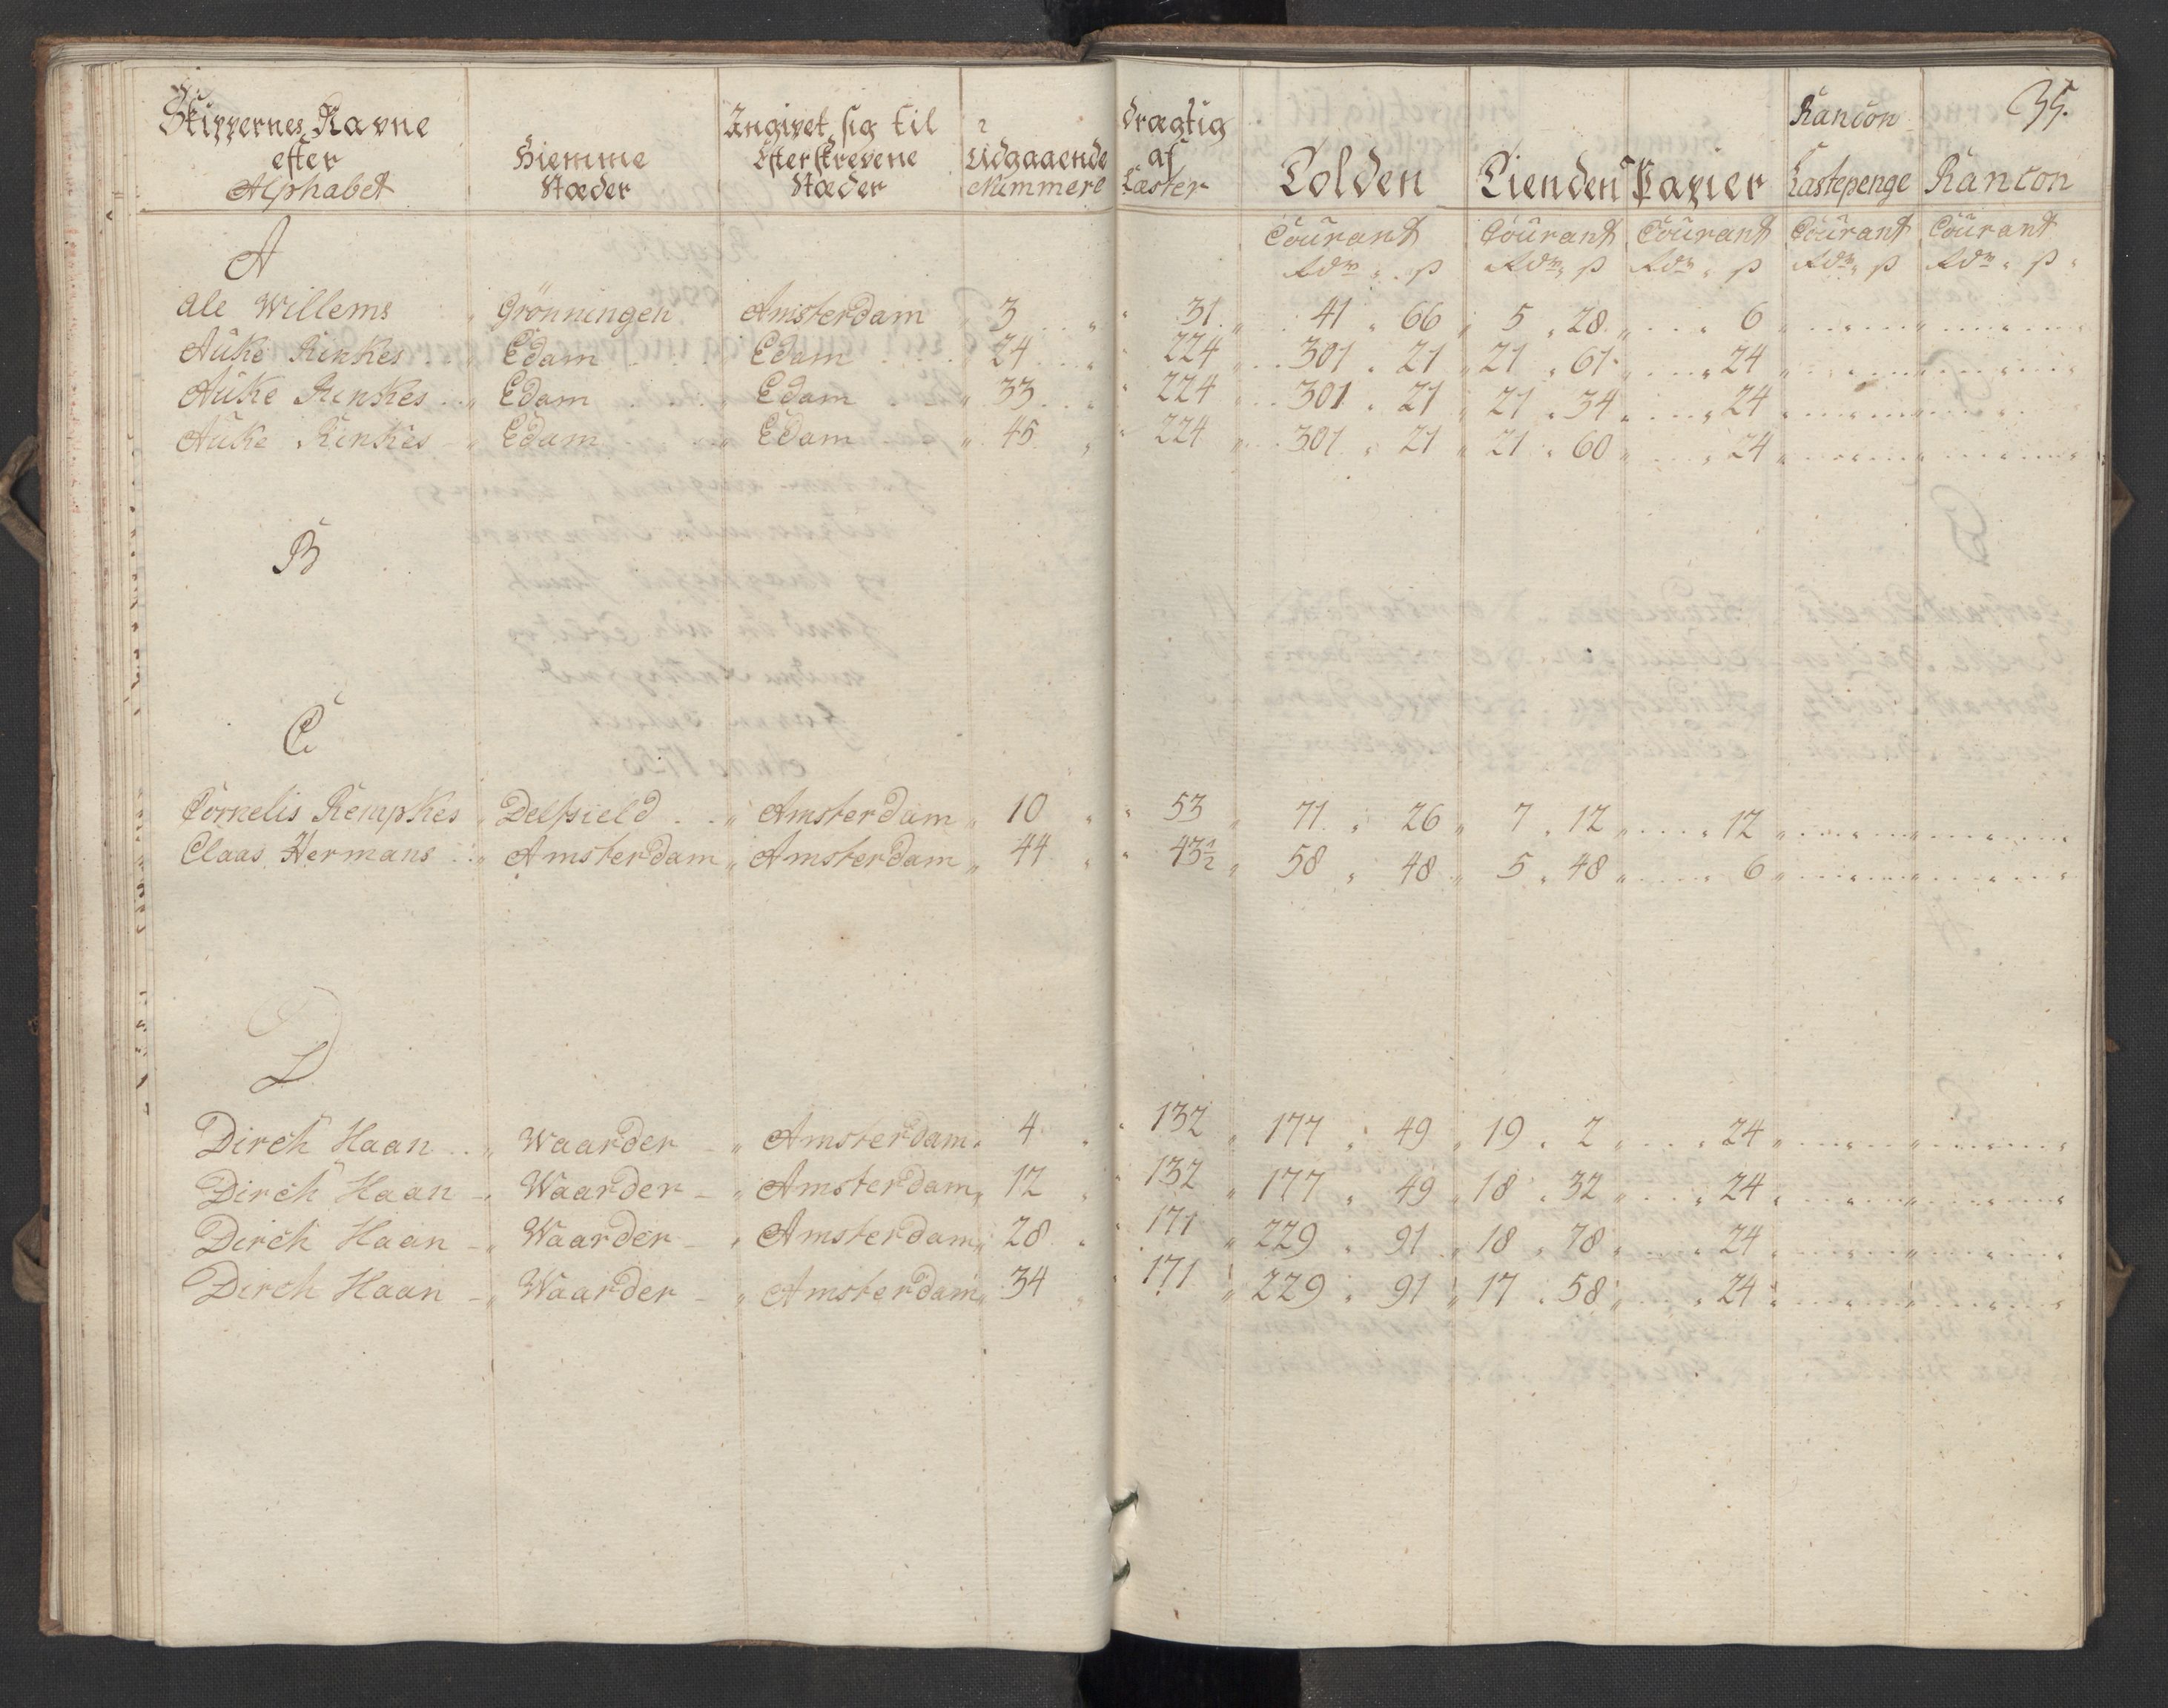 35.
Skippernes Navne efter Alphabet | Hiemme Stæder | Angivet sig til Efterskrevene Stæder | Udgaaende Nummere | Drægtig af Læster | Tolden | Tienden | Papier | Rancon Lastepenge | Rancon
Courant | Courant | Courant | Courant | Courant
Rdr ß | Rdr ß | Rdr ß | Rdr ß | Rdr ß
A
Ale Willems | Grönningen | Amsterdam | 3 | 31 | 41 66 | 5 28 | 6
Auke Rinkes | Edam | Edam | 24 | 224 | 301 21 | 21 61 | 24
Auke Rinkes | Edam | Edam | 33 | 224 | 301 21 | 21 34 | 24
Auke Rinkes | Edam | Edam | 45 | 224 | 301 21 | 21 60 | 24
B
C
Cornelis Rempkes | Delfsield | Amsterdam | 10 | 53 | 71 26 | 7 12 | 12
Claas Hermans | Amsterdam | Amsterdam | 44 | 43½ | 58 48 | 5 48 | 6
D
Dirch Haan | Waarder | Amsterdam | 4 | 132 | 177 49 | 19 2 | 24
Dirch Haan | Waarder | Amsterdam | 12 | 132 | 177 49 | 18 32 | 24
Dirch Haan | Waarder | Amsterdam | 28 | 171 | 229 91 | 18 78 | 24
Dirch Haan | Waarder | Amsterdam | 34 | 171 | 229 91 | 17 58 | 24